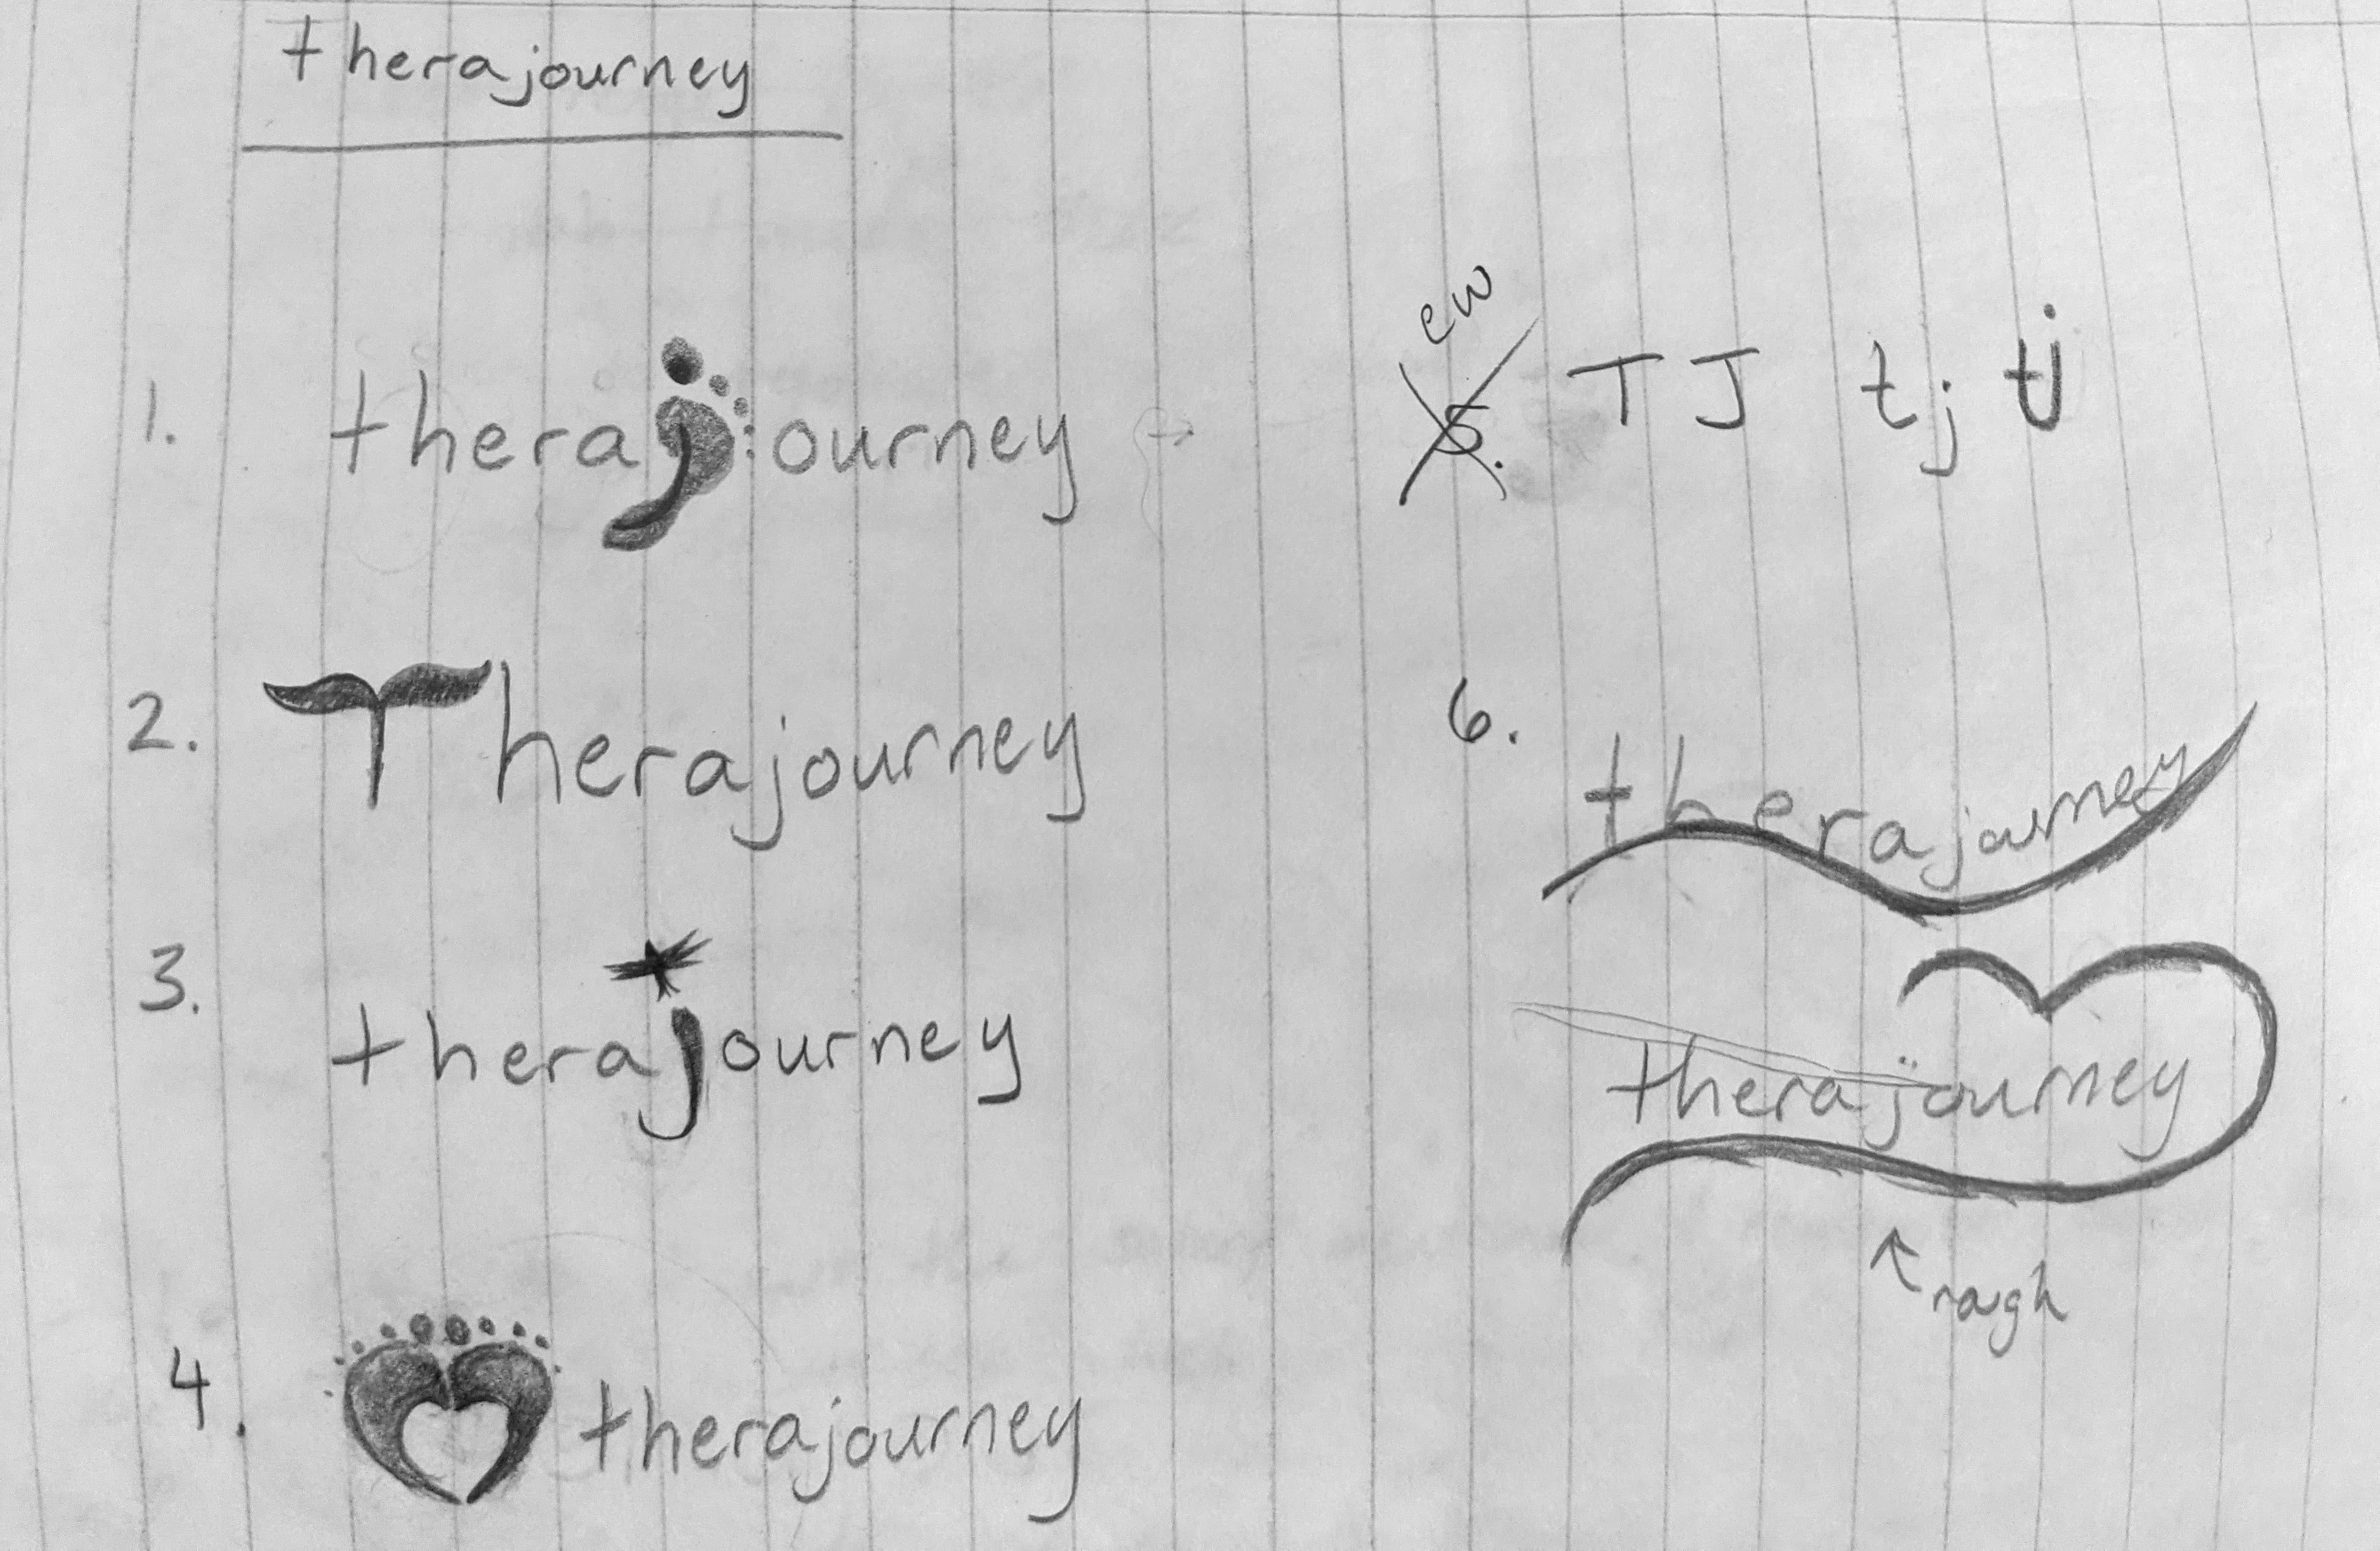 therajourney
1. therajourney
2. Therajourney
3. therajourney
4. therajourney
ew
5. TJ tj tj
6. therajourney
therajourney
rough